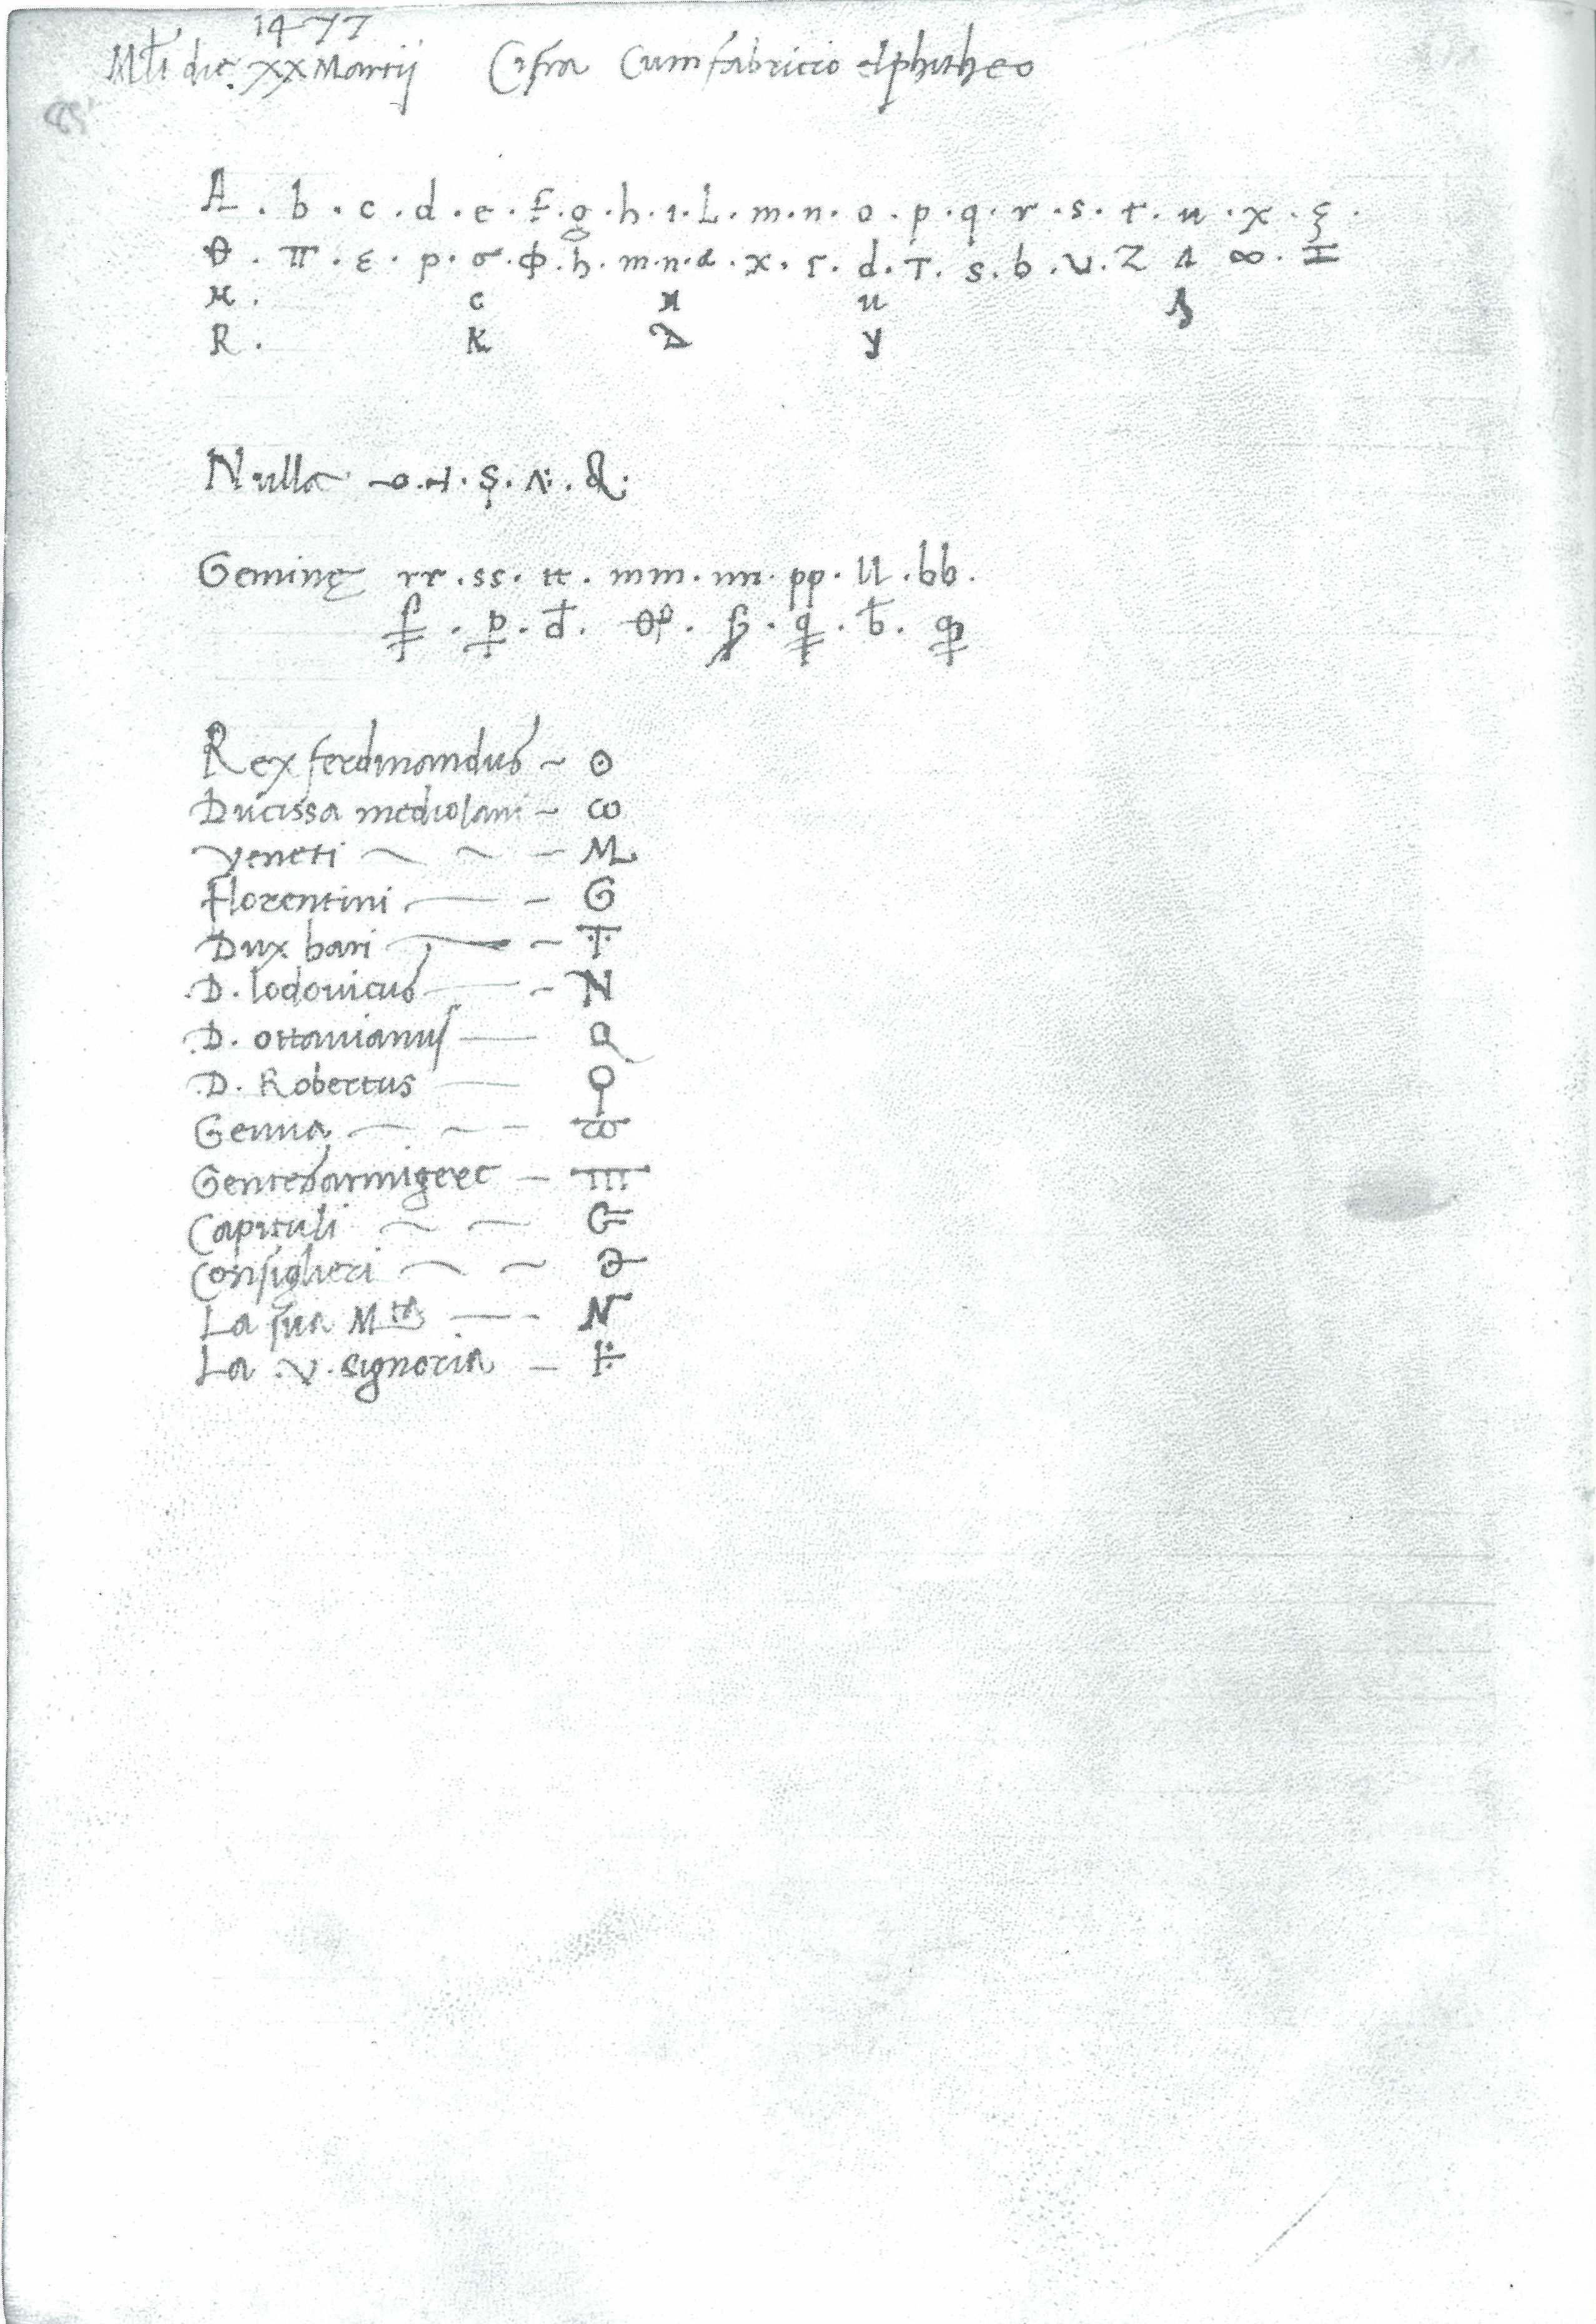 1477
Mli die. XX Martij Cifra Cum fabricio elphitheo
85
A . b . c . d . e . f . g . h . i . L . m . n . o . p . q . r . s . t . u . x . ξ .
θ . π . ε . p . σ . ϕ . h . m . n . a . x . r . d . T . s . b . v . Z ∞ . I
c u
R . K y
Nulla
Geminę rr . ss . tt . mm . nn . pp . ll . bb .
Rex ferdinandus ~ ⊙
Ducissa mediolani - ω
Veneti ~ ~ - M
Florentini - G
Dux bari ~ T
D. lodovicus - N
D. ottavianus Q
D. Robertus
Genua - ω
Gentesarmigere -
Capituli ~
Consiglieri ~
La sua Mtà - N
La .v. signoria -